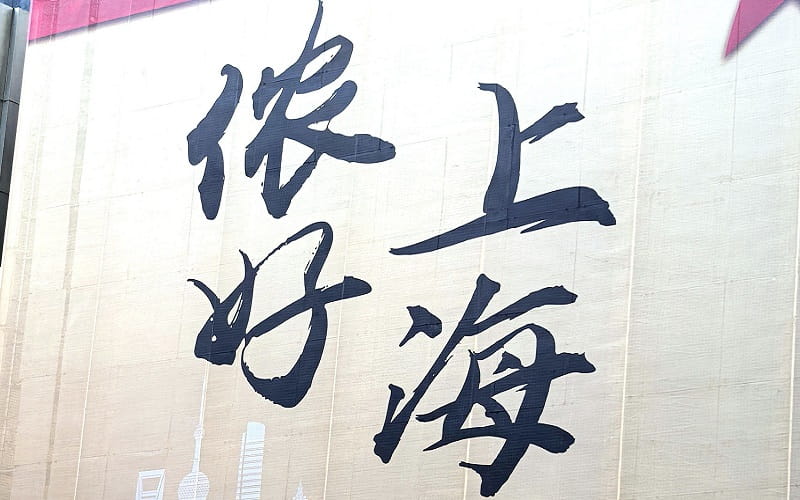 侬好
上海